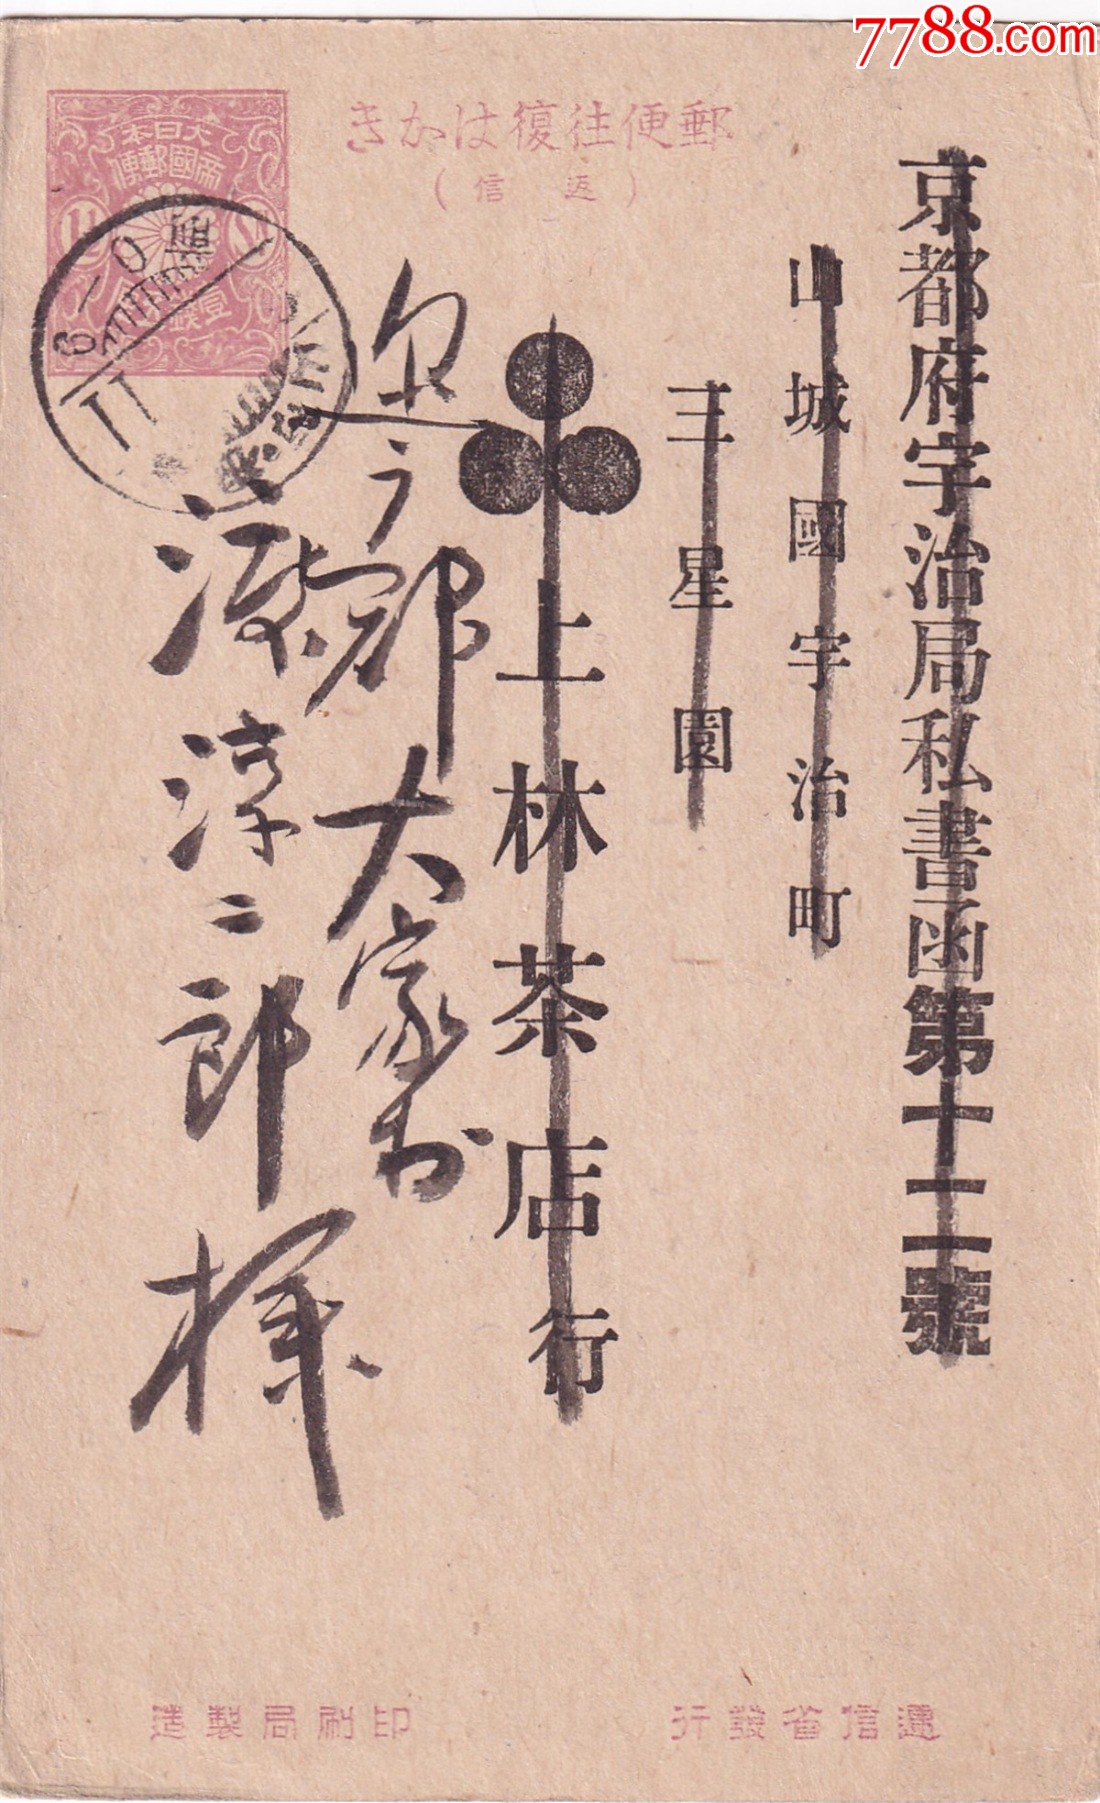 7788.com
郵便往復はかき
(返信)
大日本
帝國郵便
京都府宇治局私書函第十二號
山城國宇治町
三星園
上林茶店行
郡大家村
淳二郎様
遞信省發行
印刷局製造